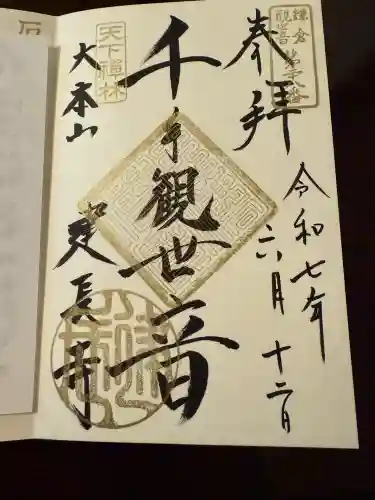 鎌倉
観音
第廿八番
奉拝
令和七年
六月十二日
千手觀世音
天下禅林
大本山
建長寺